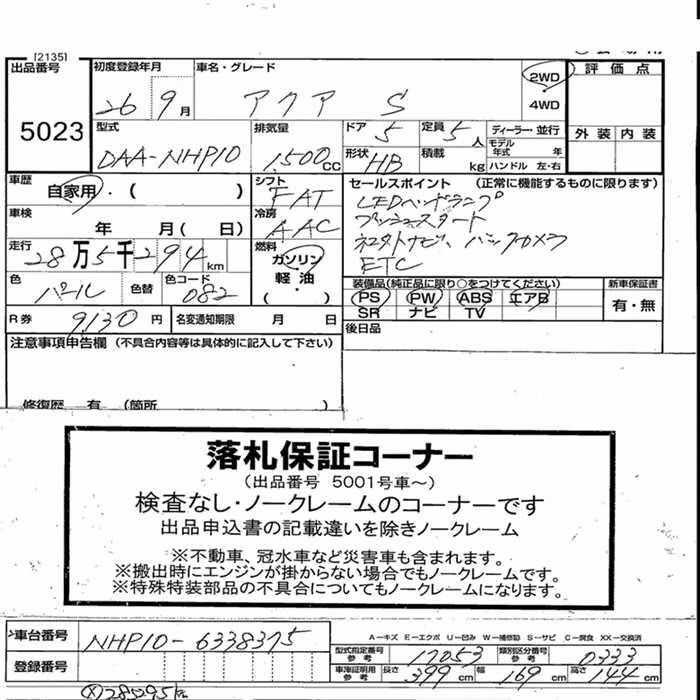 [2135]
出品番号 初度登録年月 車名・グレード 2WD 評価点
5023 26 9月 アクア S 4WD
外装 内装
型式 排気量 ドア 5 定員 5人 ディーラー・並行
DAA-NHP10 1,500CC 形状 HB 積載 kg モデル年式 年
ハンドル 左・右
車歴 自家用・( ) シフト FAT セールスポイント (正常に機能するものに限ります)
LEDヘッドランプ
車検 年 月( 日) 冷房 AAC プッシュスタート
走行 28万5千294km 燃料 ガソリン 軽油 ・( )
バックカメラ
ETC
色 パール 色替 色コード 082 装備品(純正品に限り○をつけてください) 新車保証書
PS PW ABS エアB 有・無
SR ナビ TV
R券 9,130円 名変通知期限 月 日 後日品
注意事項申告欄 (不具合内容等は具体的に記入して下さい)
修復歴 有 (箇所 )
落札保証コーナー
(出品番号 5001号車~)
検査なし・ノークレームのコーナーです
出品申込書の記載違いを除きノークレーム
※不動車、冠水車など災害車も含まれます。
※搬出時にエンジンが掛からない場合でもノークレームです。
※特殊特装部品の不具合についてもノークレームになります。
車台番号 NHP10-6338375 A-キズ E-エクボ U-凹み W-補修跡 S-サビ C-腐食 XX-交換済
型式指定番号 参考 17053 類別区分番号 参考 0333
登録番号 車庫証明用 参考 長さ 399cm 幅 169cm 高さ 144cm